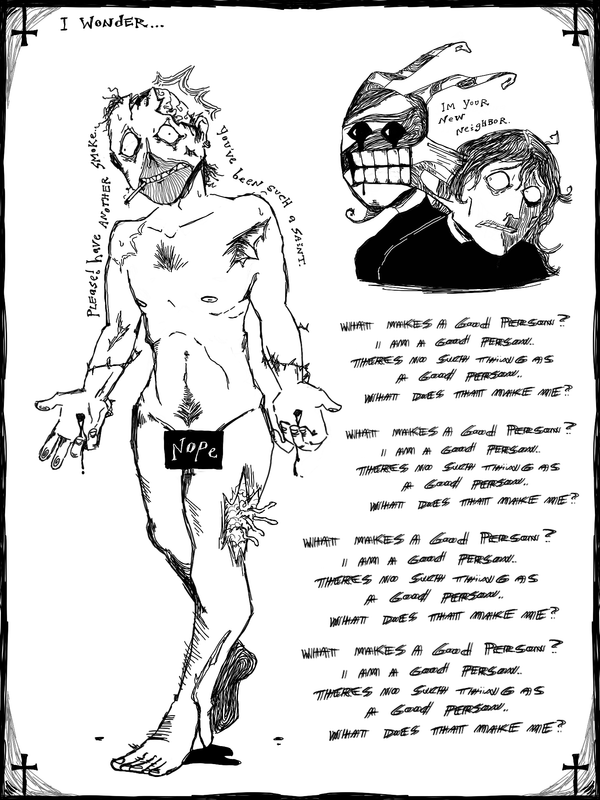 I WONDER...
PLEASE! have ANOTHER SMOKE..
you've been such a SAINT.
IM YOUR
NEW
NEIGHBOR.
Nope
WHAT MAKES A Good PERSON?
I AM A Good PERSON..
THERES NO SUCH THING AS
A Good PERSON..
WHAT DOES THAT MAKE ME?
WHAT MAKES A Good PERSON?
I AM A Good PERSON..
THERES NO SUCH THING AS
A Good PERSON..
WHAT DOES THAT MAKE ME?
WHAT MAKES A Good PERSON?
I AM A Good PERSON..
THERES NO SUCH THING AS
A Good PERSON..
WHAT DOES THAT MAKE ME?
WHAT MAKES A Good PERSON?
I AM A Good PERSON..
THERES NO SUCH THING AS
A Good PERSON..
WHAT DOES THAT MAKE ME?